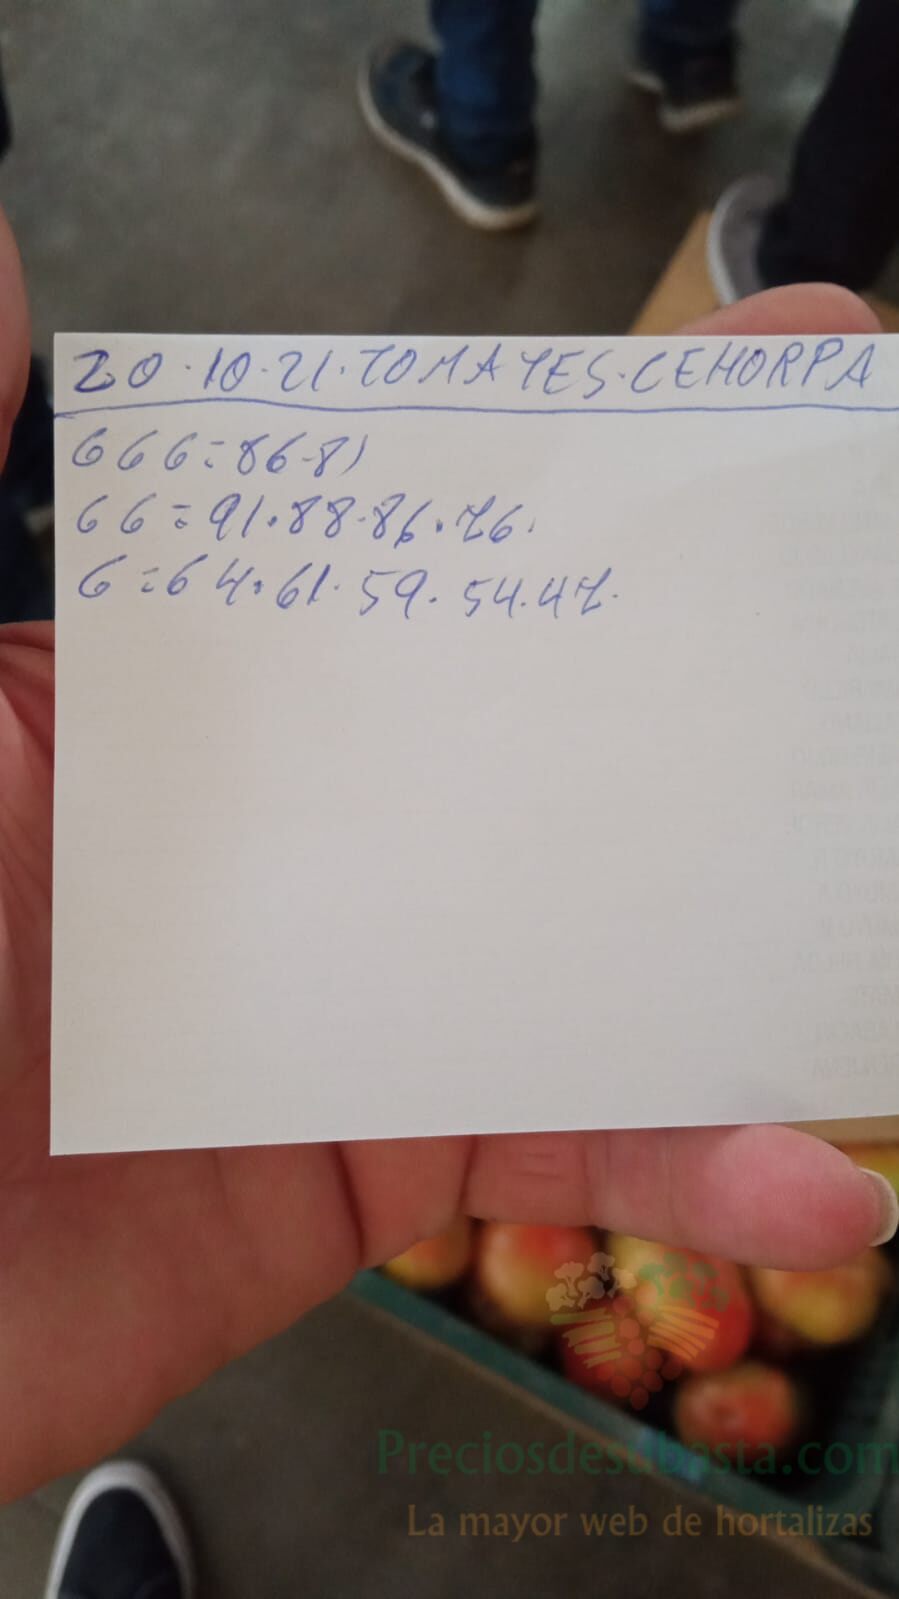 20·10·21·TOMATES·CEHORPA
666=86-81
66=91·88·86·76·
6=64·61·59·54·47·
Preciosdesubasta.com
La mayor web de hortalizas